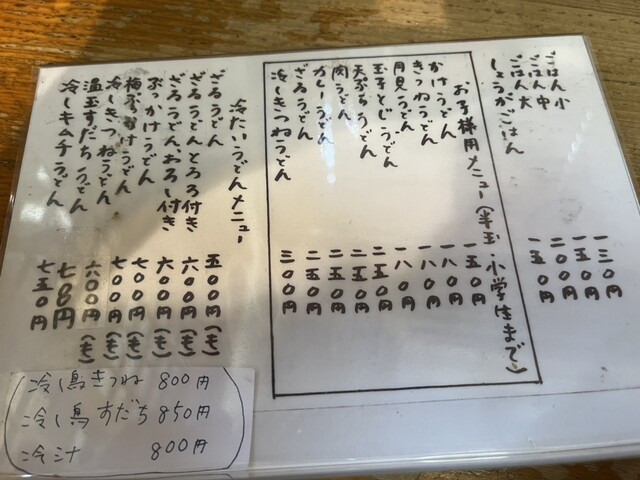 ごはん小 一三〇円
ごはん中 一五〇円
ごはん大 二〇〇円
しょうがごはん 一五〇円
お子様用メニュー(半玉・小学生まで)
かけうどん 一五〇円
きつねうどん 一八〇円
月見うどん 一八〇円
玉子とじうどん 一八〇円
天ぷらうどん 二五〇円
肉うどん 二五〇円
カレーうどん 二五〇円
ざるうどん 二五〇円
冷しきつねうどん 三〇〇円
冷たいうどんメニュー
ざるうどん 五〇〇円(も)
ざるうどんとろろ付き 六〇〇円(も)
ざるうどん、おろし付き 六〇〇円(も)
ぶっかけうどん 七〇〇円(も)
梅ぶっかけうどん 七〇〇円(も)
冷しきつねうどん 六〇〇円(も)
温玉すだちうどん 七〇〇円
冷しキムチうどん 七五〇円
冷し鳥きつね 800円
冷し鳥すだち 850円
冷汁 800円